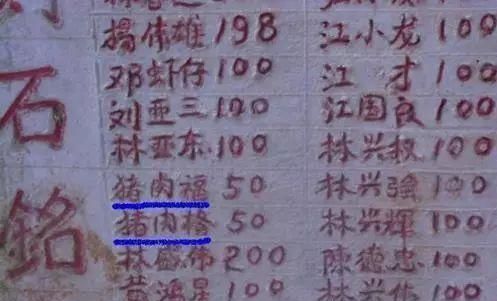 石銘
揭伟雄 198 江小龙 100
邓虾仔 100 江才 100
刘亚三 100 江国良 100
林亚东 100 林兴权 100
猪肉福 50 林兴强 100
猪肉 50 林兴辉 100
林盛伟 200 陳德忠 100
黄鸿星 100 林兴 100